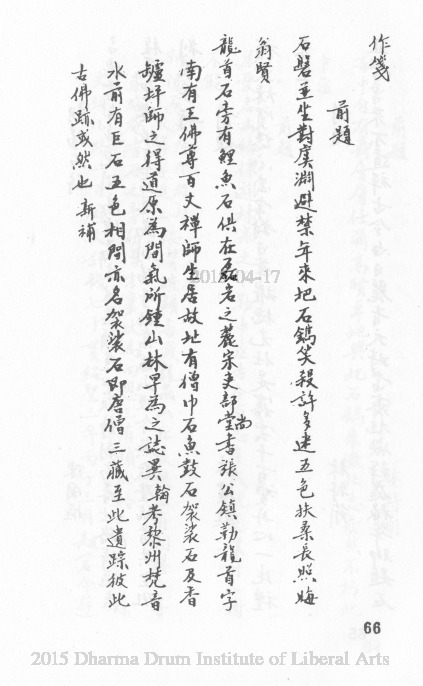 作箋
前題
石磐垂坐對虞淵避禁年來把石鐫笑殺許多迷五色扶桑長照海
翁賢
龍首石旁有鯉魚石俱在磊老之麓宋吏部尚書張公鎮勒龍首字
南有王佛尊百丈禪師生居故址有僧巾石魚鼓石袈裟石及香
罏坪師之得道原為間氣所鍾山林早為之誌異輪考黎州梵音
水前有巨石五色相間亦名袈裟石即唐僧三藏至此遺踪彼此
古佛跡或然也 新補
2015-04-17
66
2015 Dharma Drum Institute of Liberal Arts